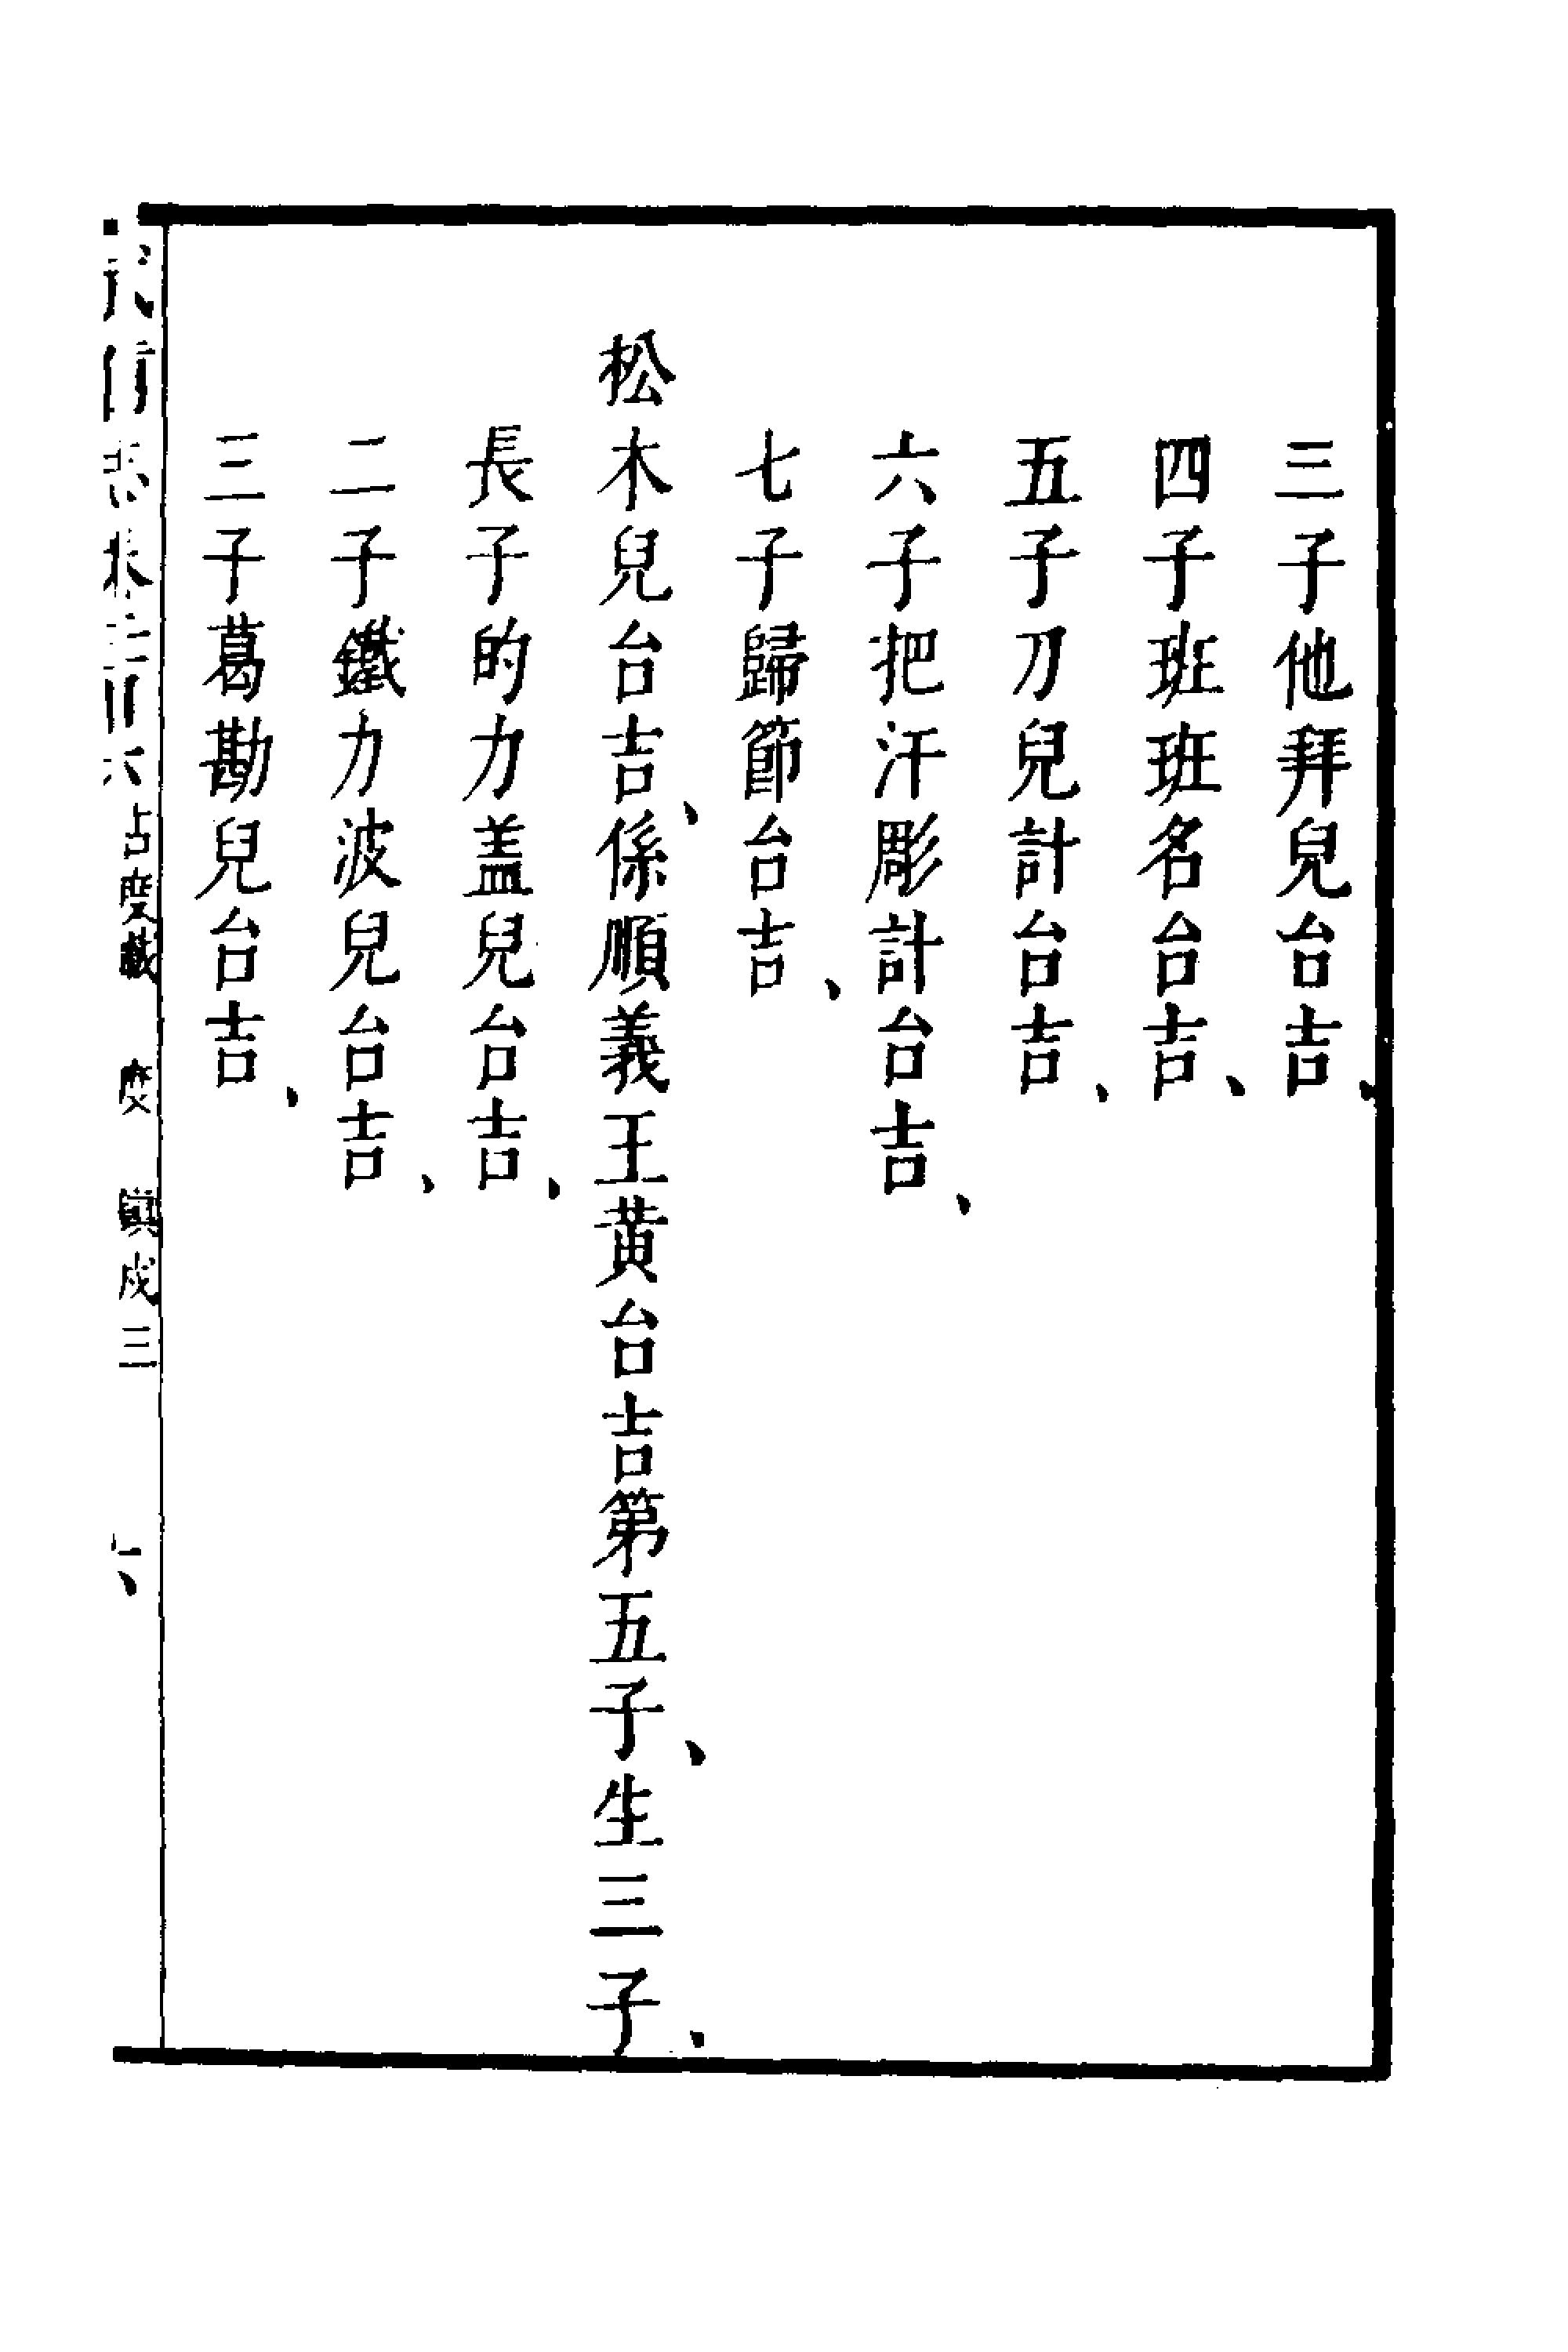 三子他拜兒台吉、
四子班班名台吉、
五子刀兒計台吉、
六子把汗彫計台吉、
七子歸節台吉、
松木兒台吉、係順義王黃台吉第五子、生三子、
長子的力盖兒台吉、
二子鐵力波兒台吉、
三子葛勘兒台吉、
占度載 度 鎭戍三